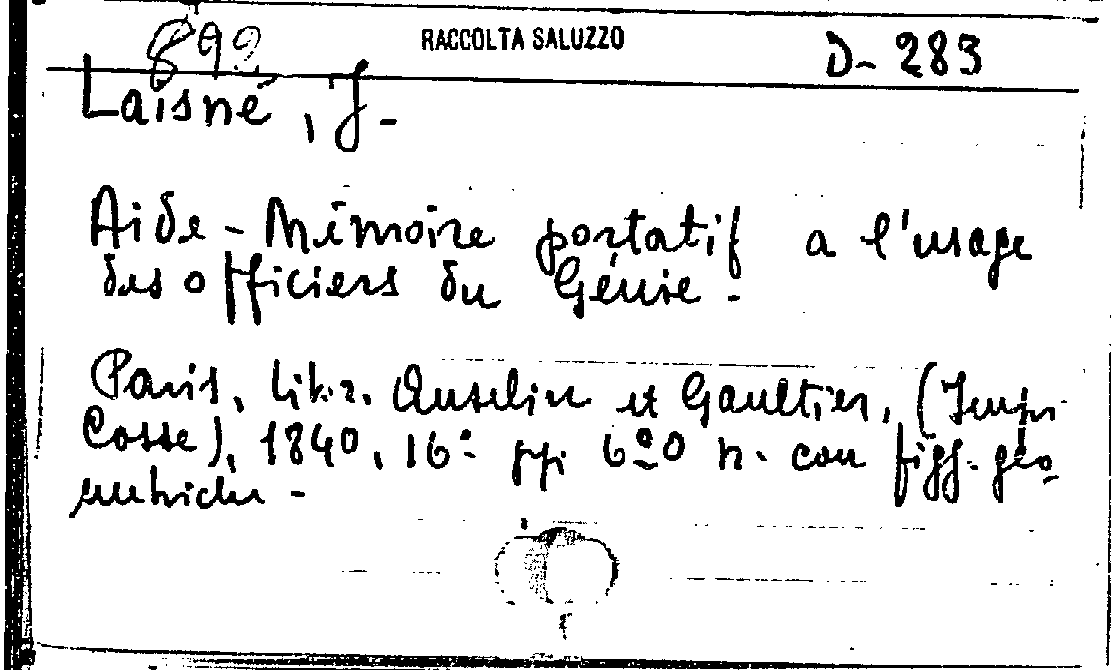 892 RACCOLTA SALUZZO D- 283
Laisné, J.-
Aide-Mémoire portatif a l'usage
des officiers du Génie.
Paris, Libr. Anselin et Gaultier, (Impr.
Cosse), 1840, 16° pp. n. con figg. geo-
metriche -